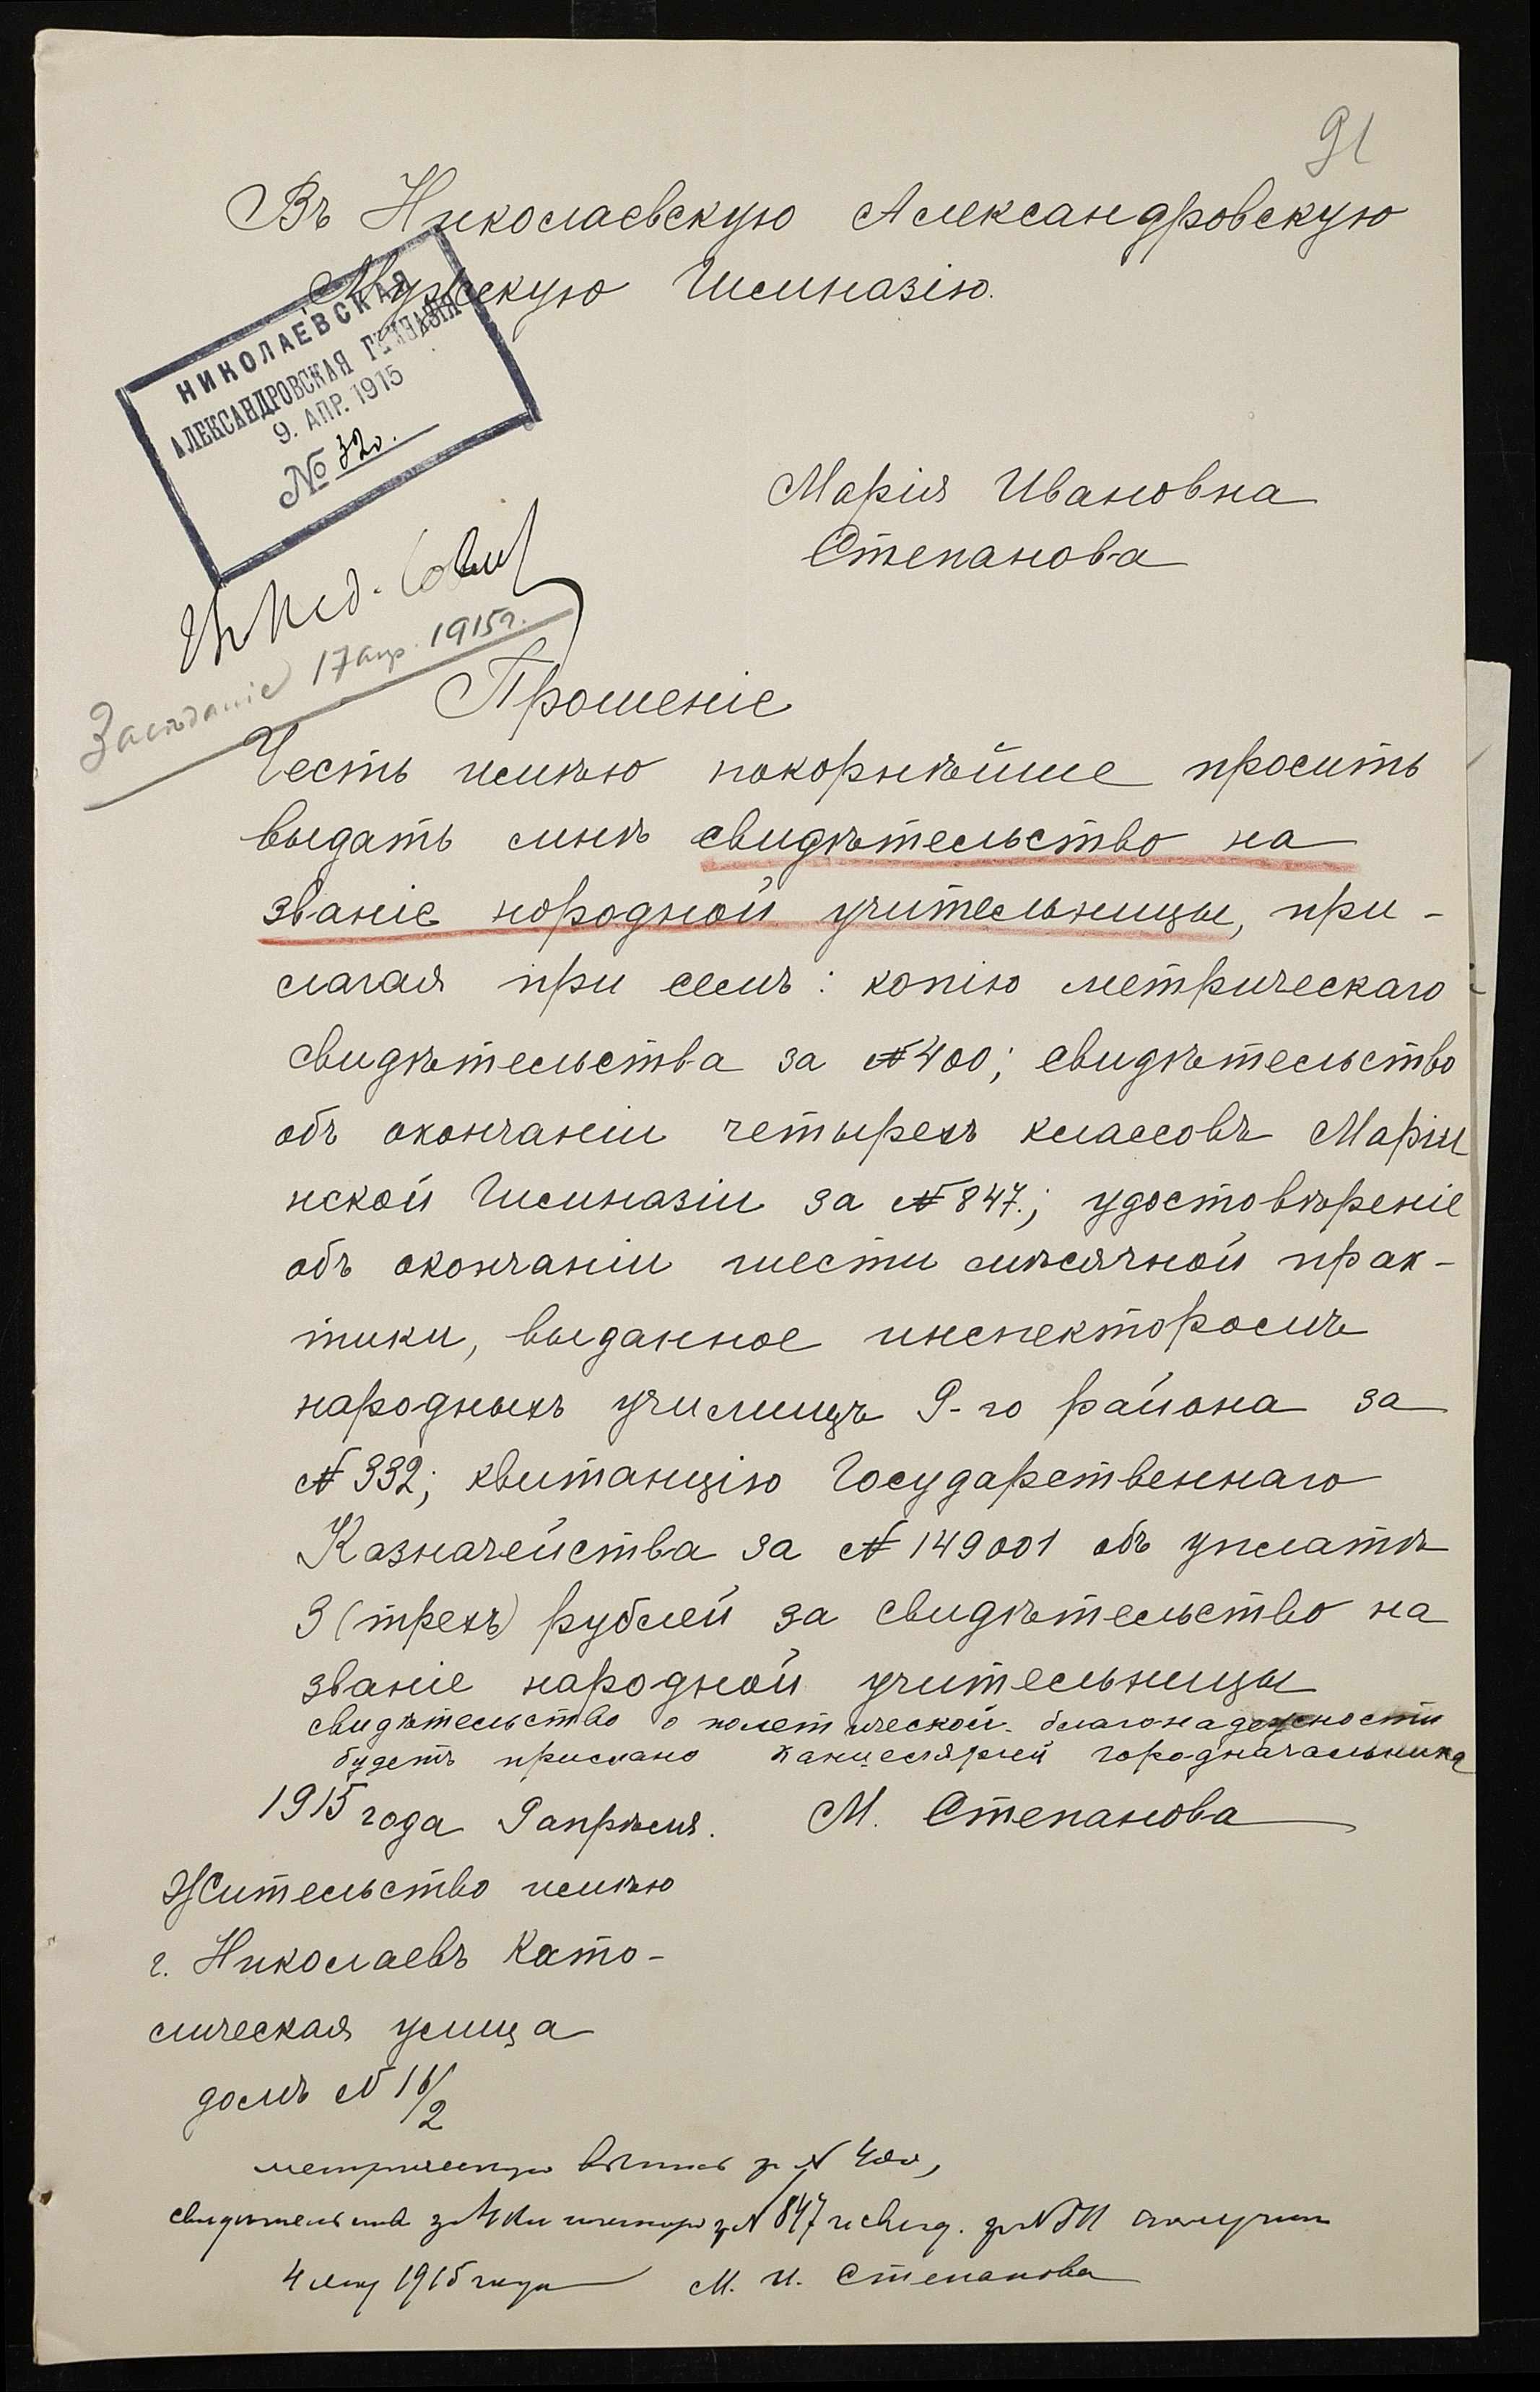 91
Въ Николаевскую Александровскую
Мужскую Гимназію.
НИКОЛАЕВСКАЯ
АЛЕКСАНДРОВСКАЯ ГИМНАЗІЯ
9. АПР. 1915
№ 320.
Марія Ивановна
Степанова
Въ Пед. Совѣт
Засѣданіе 17 апр. 1915 г.
Прошеніе
Честь имѣю покорнѣйше просить
выдать мнѣ свидѣтельство на
званіе нородной учительницы, при-
лагая при семъ: копію метрическаго
свидѣтельства за № 400; свидѣтельство
объ окончаніи четырехъ классовъ Маріи
нской Гимназіи за № 847.; удостовѣреніе
объ окончаніи шести мѣсячной прак-
тики, выданное инспекторомъ
народныхъ училищъ 9-го района за
№ 332; квитанцію Государственнаго
Казначейства за № 149001 объ уплатѣ
3 (трехъ) рублей за свидѣтельство на
званіе народной учительницы
свидѣтельство о полетической благонадежности
будетъ прислано канцелярией городначальника
1915 года 9 апрѣля. М. Степанова
Жительство имѣю
г. Николаевъ Като-
лическая улица
домъ № 16/2
метрическую выпись за № 400,
свидѣтельство за 4 кл за № 847 и свид. за № получила
4 мая 1915 года М. И. Степанова